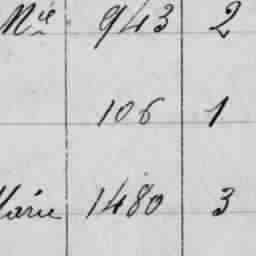 Mie 943 2
106 1
Marie 1480 3